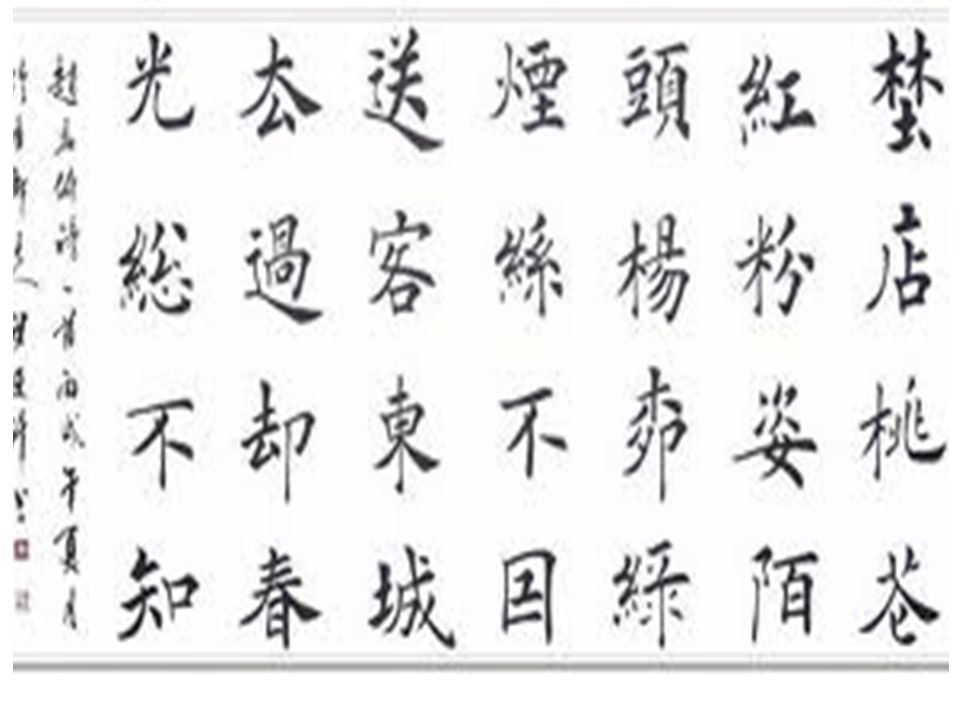 埜店桃花
紅粉姿陌
頭楊桺綠
煙絲不因
送客東城
去過却春
光総不知
趙孟頫詩一首丙戌年夏月